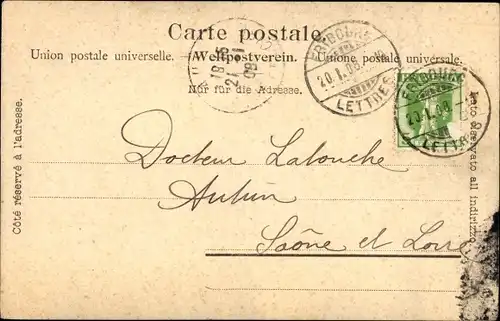 Carte postale.
Union postale universelle. — Weltpostverein. — Unione postale universale.
Nur für die Adresse.
FRIBOURG
20.1.08.
LETTRES
FRIBOURG
20.1.08.
LETTRES
18
21
Côté réservé à l'adresse.
Lato riservato all'indirizzo.
Docteur Latouche
Autun
Saône et Loire